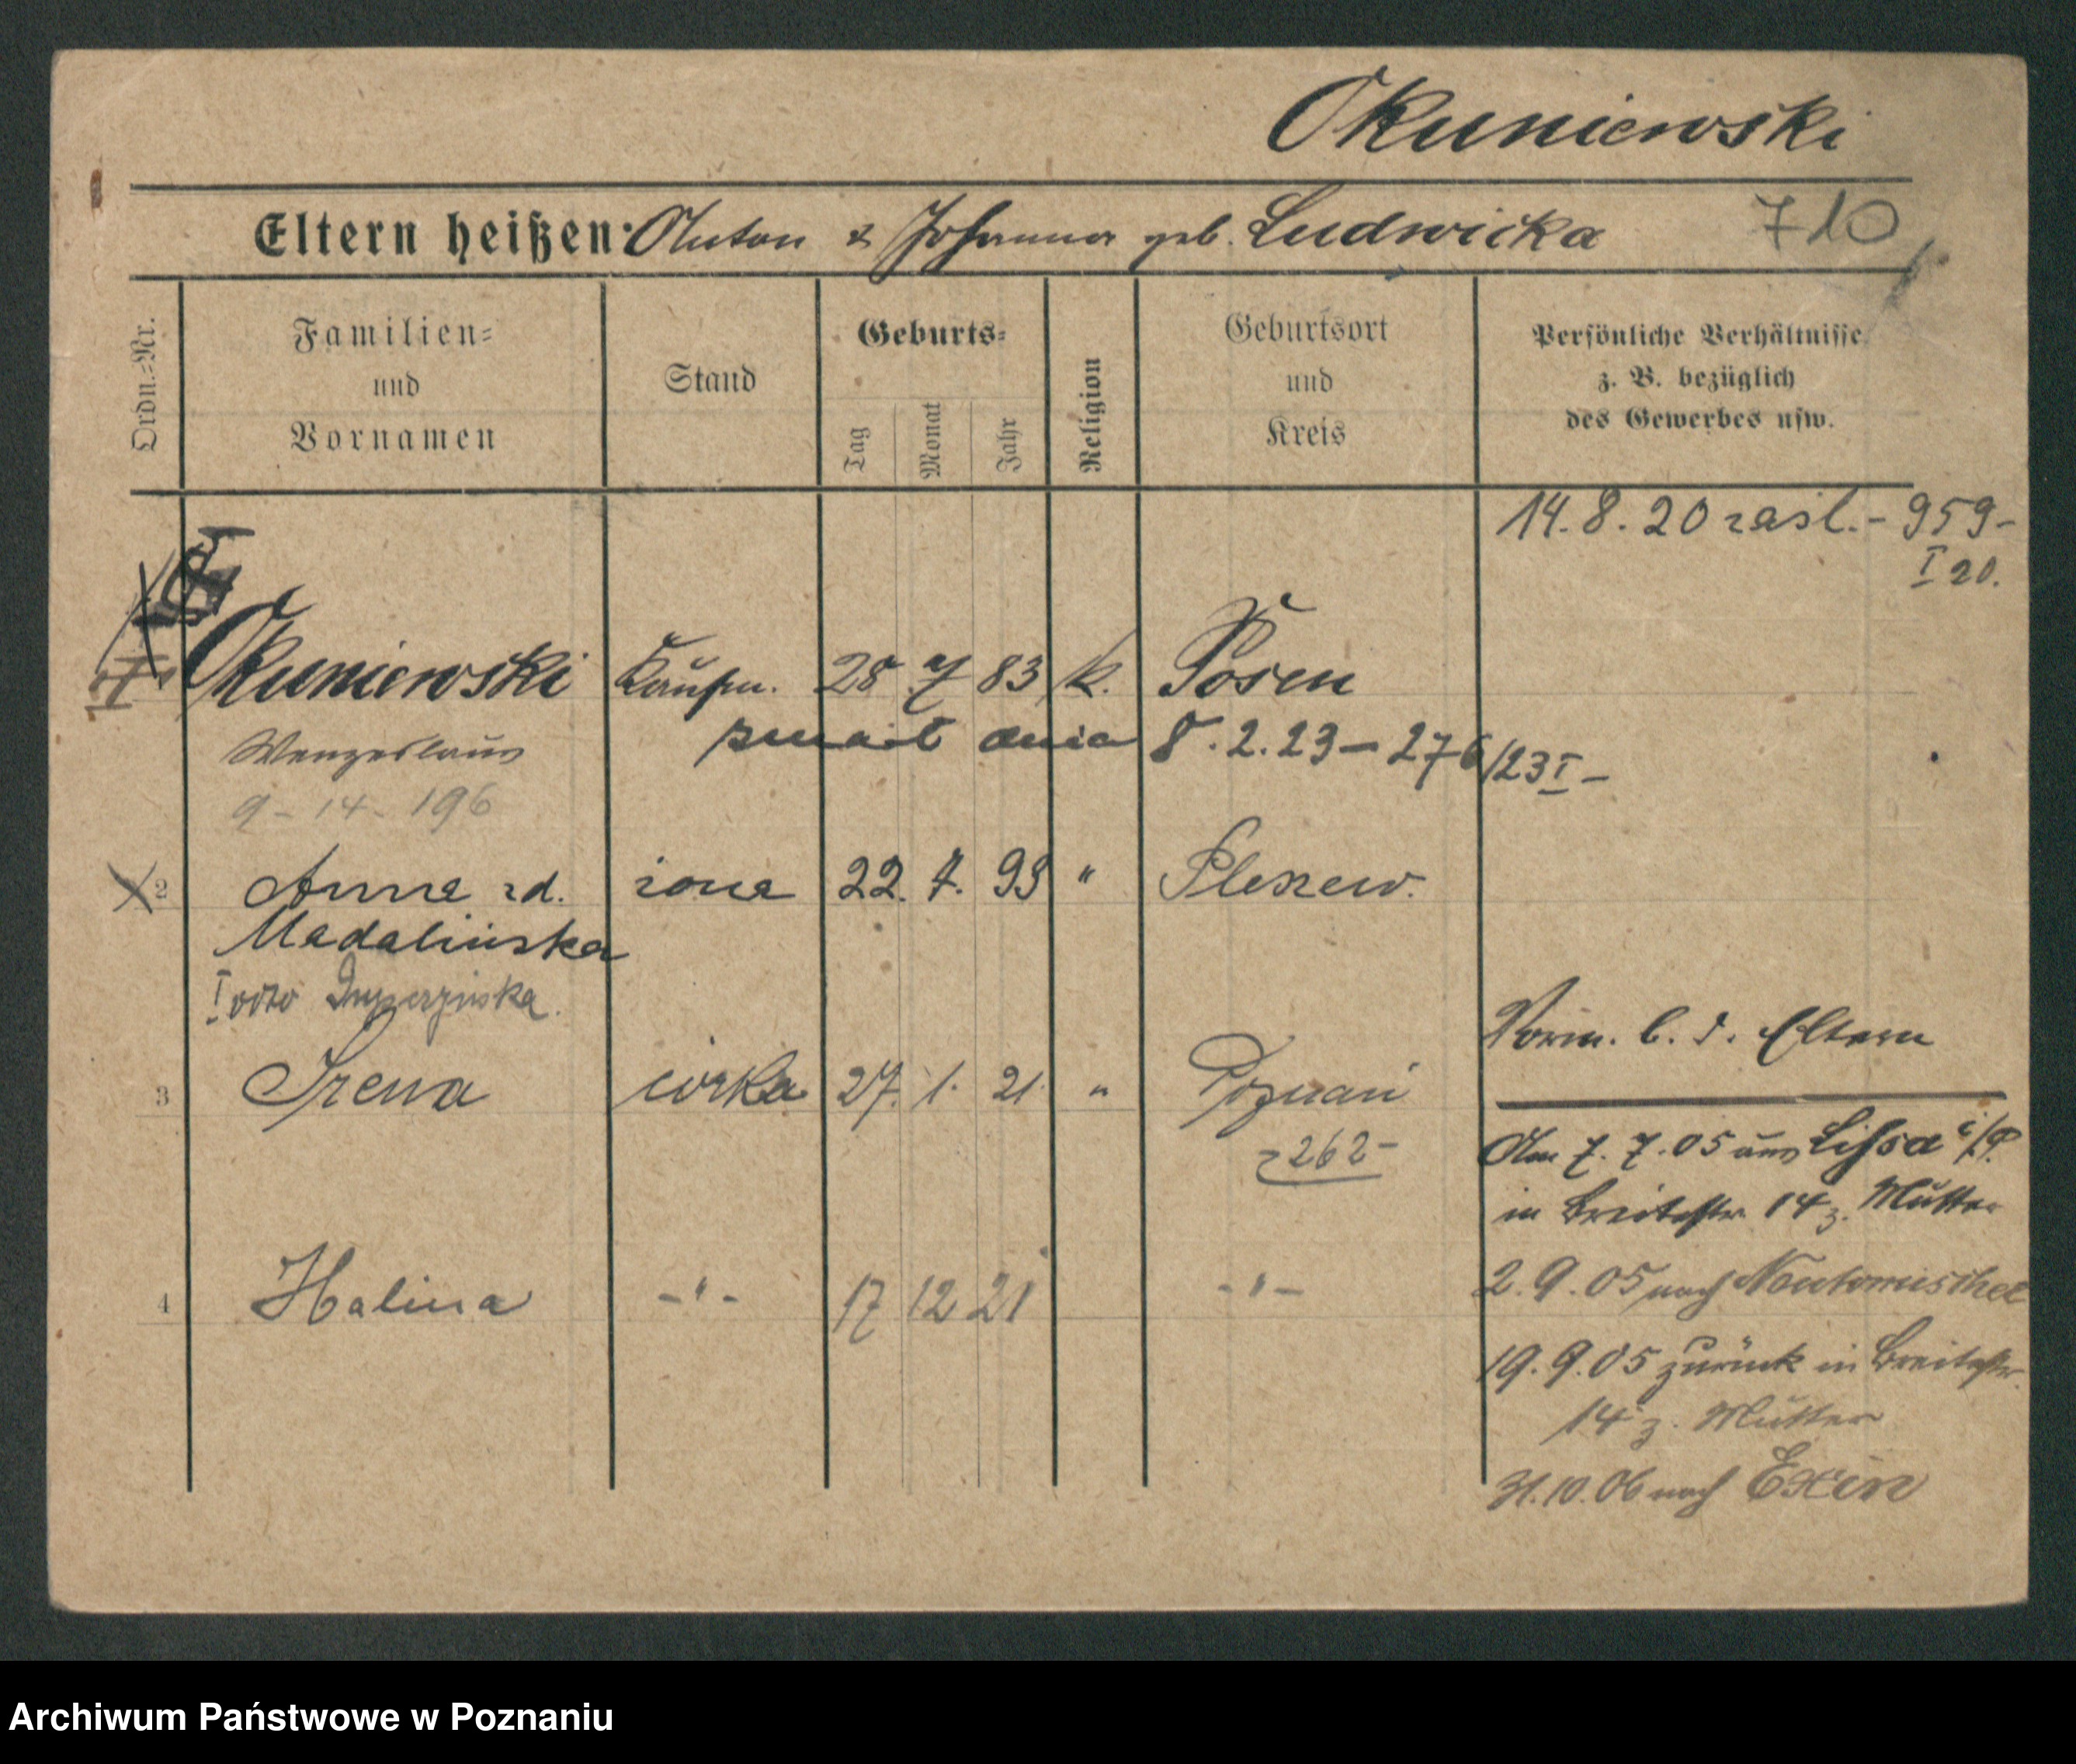 Okuniewski
Eltern heißen: Anton & Johanna geb. Ludwicka 710
Ordn.-Nr.
Familien-
und
Vornamen
Stand
Geburts-
Tag
Monat
Jahr
Religion
Geburtsort
und
Kreis
Persönliche Verhältnisse
z. B. bezüglich
des Gewerbes usw.
14.8.20 zaśl. - 959-
I 20.
Okuniewski Kaufm. 28 7 83 k. Posen
Wenzeslaus
zmarł dnia 8.2.23 - 276/23 I -
9 - 14 - 196
2 Anna zd. żona 22. 7. 93 " Pleszew.
Madalińska
I voto
Vorm. b. d. Eltern
3 Irena córka 27. 1. 21 " Poznań
262 -
Am 7.7.05 aus Lissa i/P.
in Breitestr. 14 z. Mutter
2.9.05 nach Neutomischel
4 Halina - " - 17 12 21 - " -
19.9.05 zurück in Breitestr.
14 z. Mutter
31.10.06 nach Exin
Archiwum Państwowe w Poznaniu